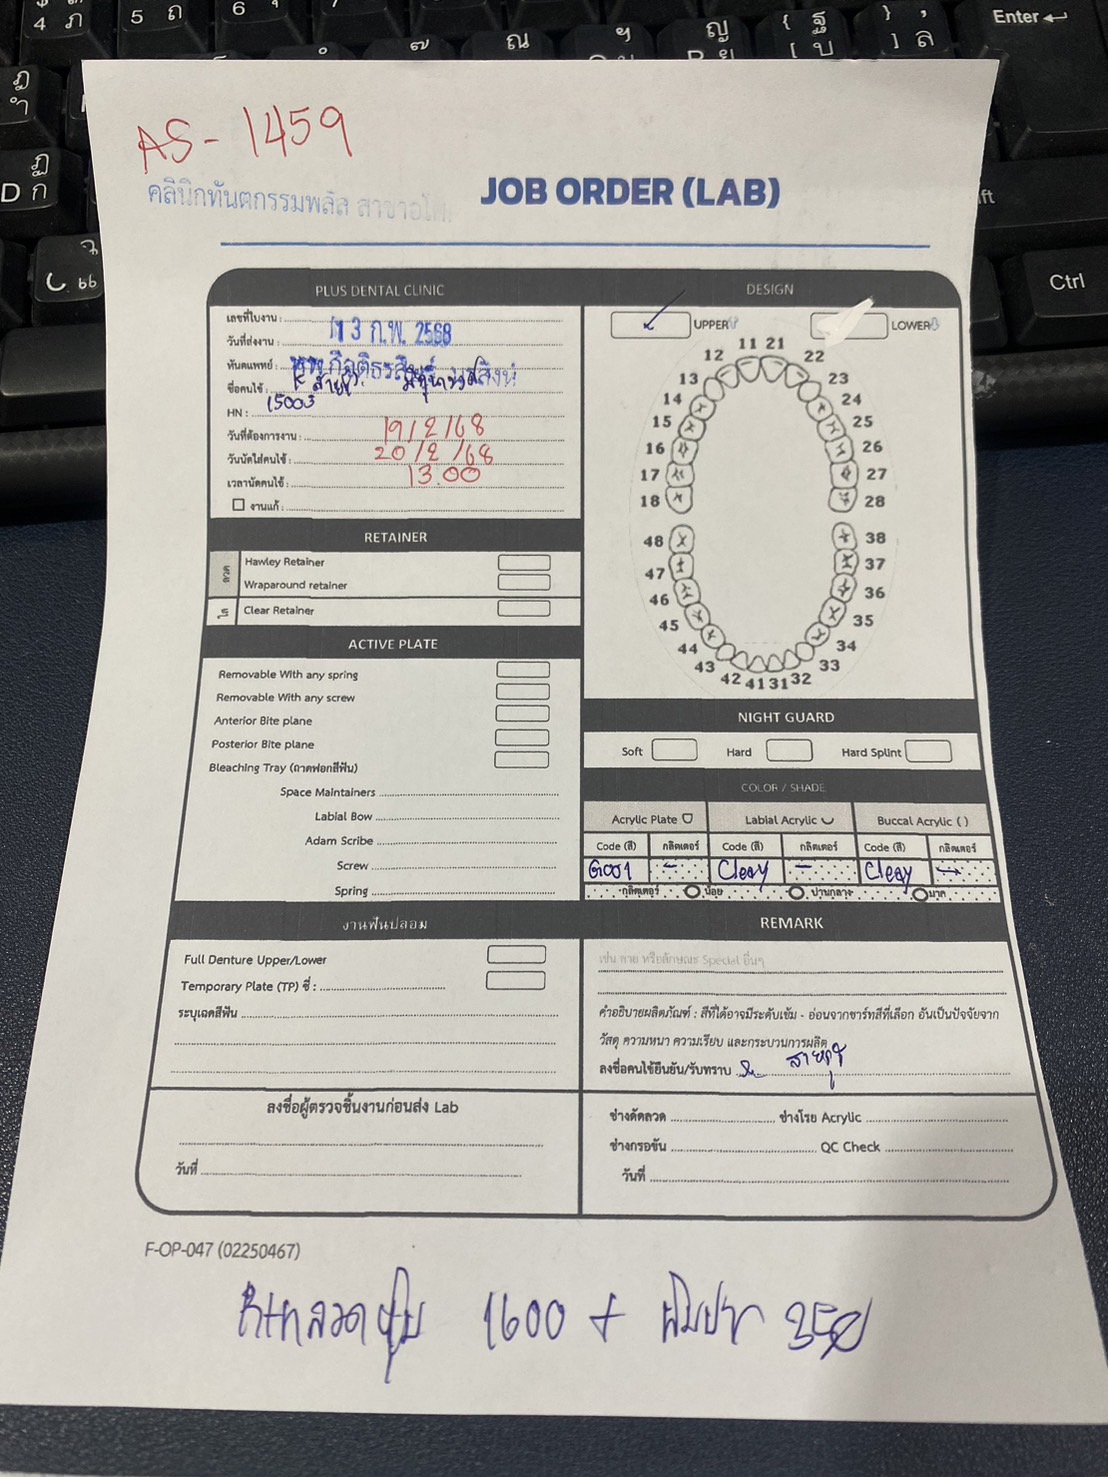 AS-1459
คลินิกทันตกรรมพลัส สาขาอโศก
JOB ORDER (LAB)
PLUS DENTAL CLINIC
เลขที่ใบงาน :
วันที่ส่งงาน : 13 ก.พ. 2568
ทันตแพทย์ :
ชื่อคนไข้ :
HN : 15003
วันที่ต้องการงาน : 19/2/68
วันนัดใส่คนไข้ : 20/2/68
เวลานัดคนไข้ : 13.00
งานแก้ :
RETAINER
ลวด
Hawley Retainer
Wraparound retainer
ใส
Clear Retainer
ACTIVE PLATE
Removable With any spring
Removable With any screw
Anterior Bite plane
Posterior Bite plane
Bleaching Tray (ถาดฟอกสีฟัน)
Space Maintainers
Labial Bow
Adam Scribe
Screw
Spring
งานฟันปลอม
Full Denture Upper/Lower
Temporary Plate (TP) ซี่ :
ระบุเฉดสีฟัน
ลงชื่อผู้ตรวจชิ้นงานก่อนส่ง Lab
วันที่
DESIGN
UPPER LOWER
11 21
12 22
13 23
14 24
15 25
16 26
17 27
18 28
48 38
47 37
46 36
45 35
44 34
43 33
42 41 31 32
NIGHT GUARD
Soft Hard Hard Splint
COLOR / SHADE
Acrylic Plate Labial Acrylic Buccal Acrylic ( )
Code (สี) กลิตเตอร์ Code (สี) กลิตเตอร์ Code (สี) กลิตเตอร์
G001 - Clear - Clear -
กลิตเตอร์ น้อย ปานกลาง มาก
REMARK
เช่น ลาย หรือลักษณะ Special อื่นๆ
คำอธิบายผลิตภัณฑ์ : สีที่ได้อาจมีระดับเข้ม - อ่อนจากชาร์ทสีที่เลือก อันเป็นปัจจัยจาก
วัสดุ ความหนา ความเรียบ และกระบวนการผลิต
ลงชื่อคนไข้ยืนยัน/รับทราบ
ช่างดัดลวด ช่างโรย Acrylic
ช่างกรอขัน QC Check
วันที่
F-OP-047 (02250467)
1600 + พิมปาก 350
4 ภ
5 ถ
Enter
Ctrl